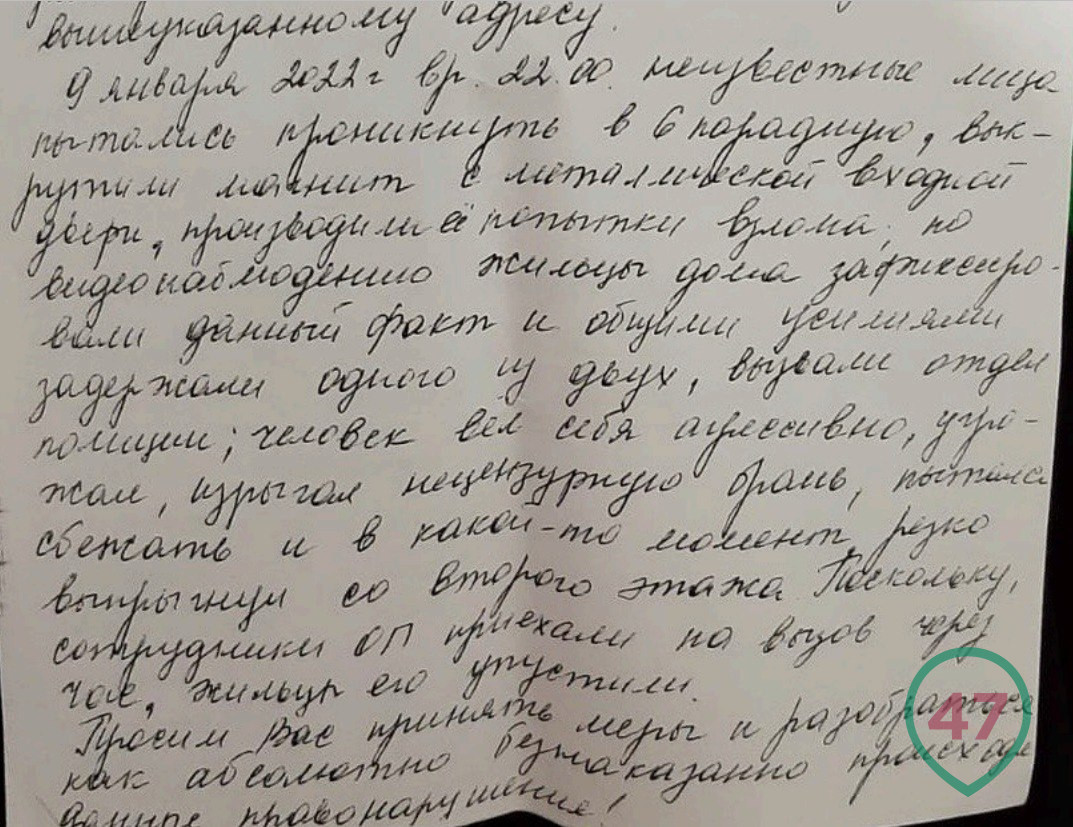 вышеуказанному адресу.
9 января 2022 г вр. 22.00. неизвестные лица
пытались проникнуть в 6 парадную, вык-
рутили магнит с металлической входной
двери, производили её попытки взлома, по
видеонаблюдению жильцы дома зафиксиро-
вали данный факт и общими усилиями
задержали одного из двух, вызвали отдел
полиции; человек вёл себя агрессивно, угро-
жал, изрыгал нецензурную брань, пытался
сбежать и в какой-то момент резко
выпрыгнул со второго этажа. Поскольку,
сотрудники ОП приехали на вызов через
час, жильцы его упустили.
Просим Вас принять меры и разобраться
как абсолютно безнаказанно происходя
данные правонарушение!
47